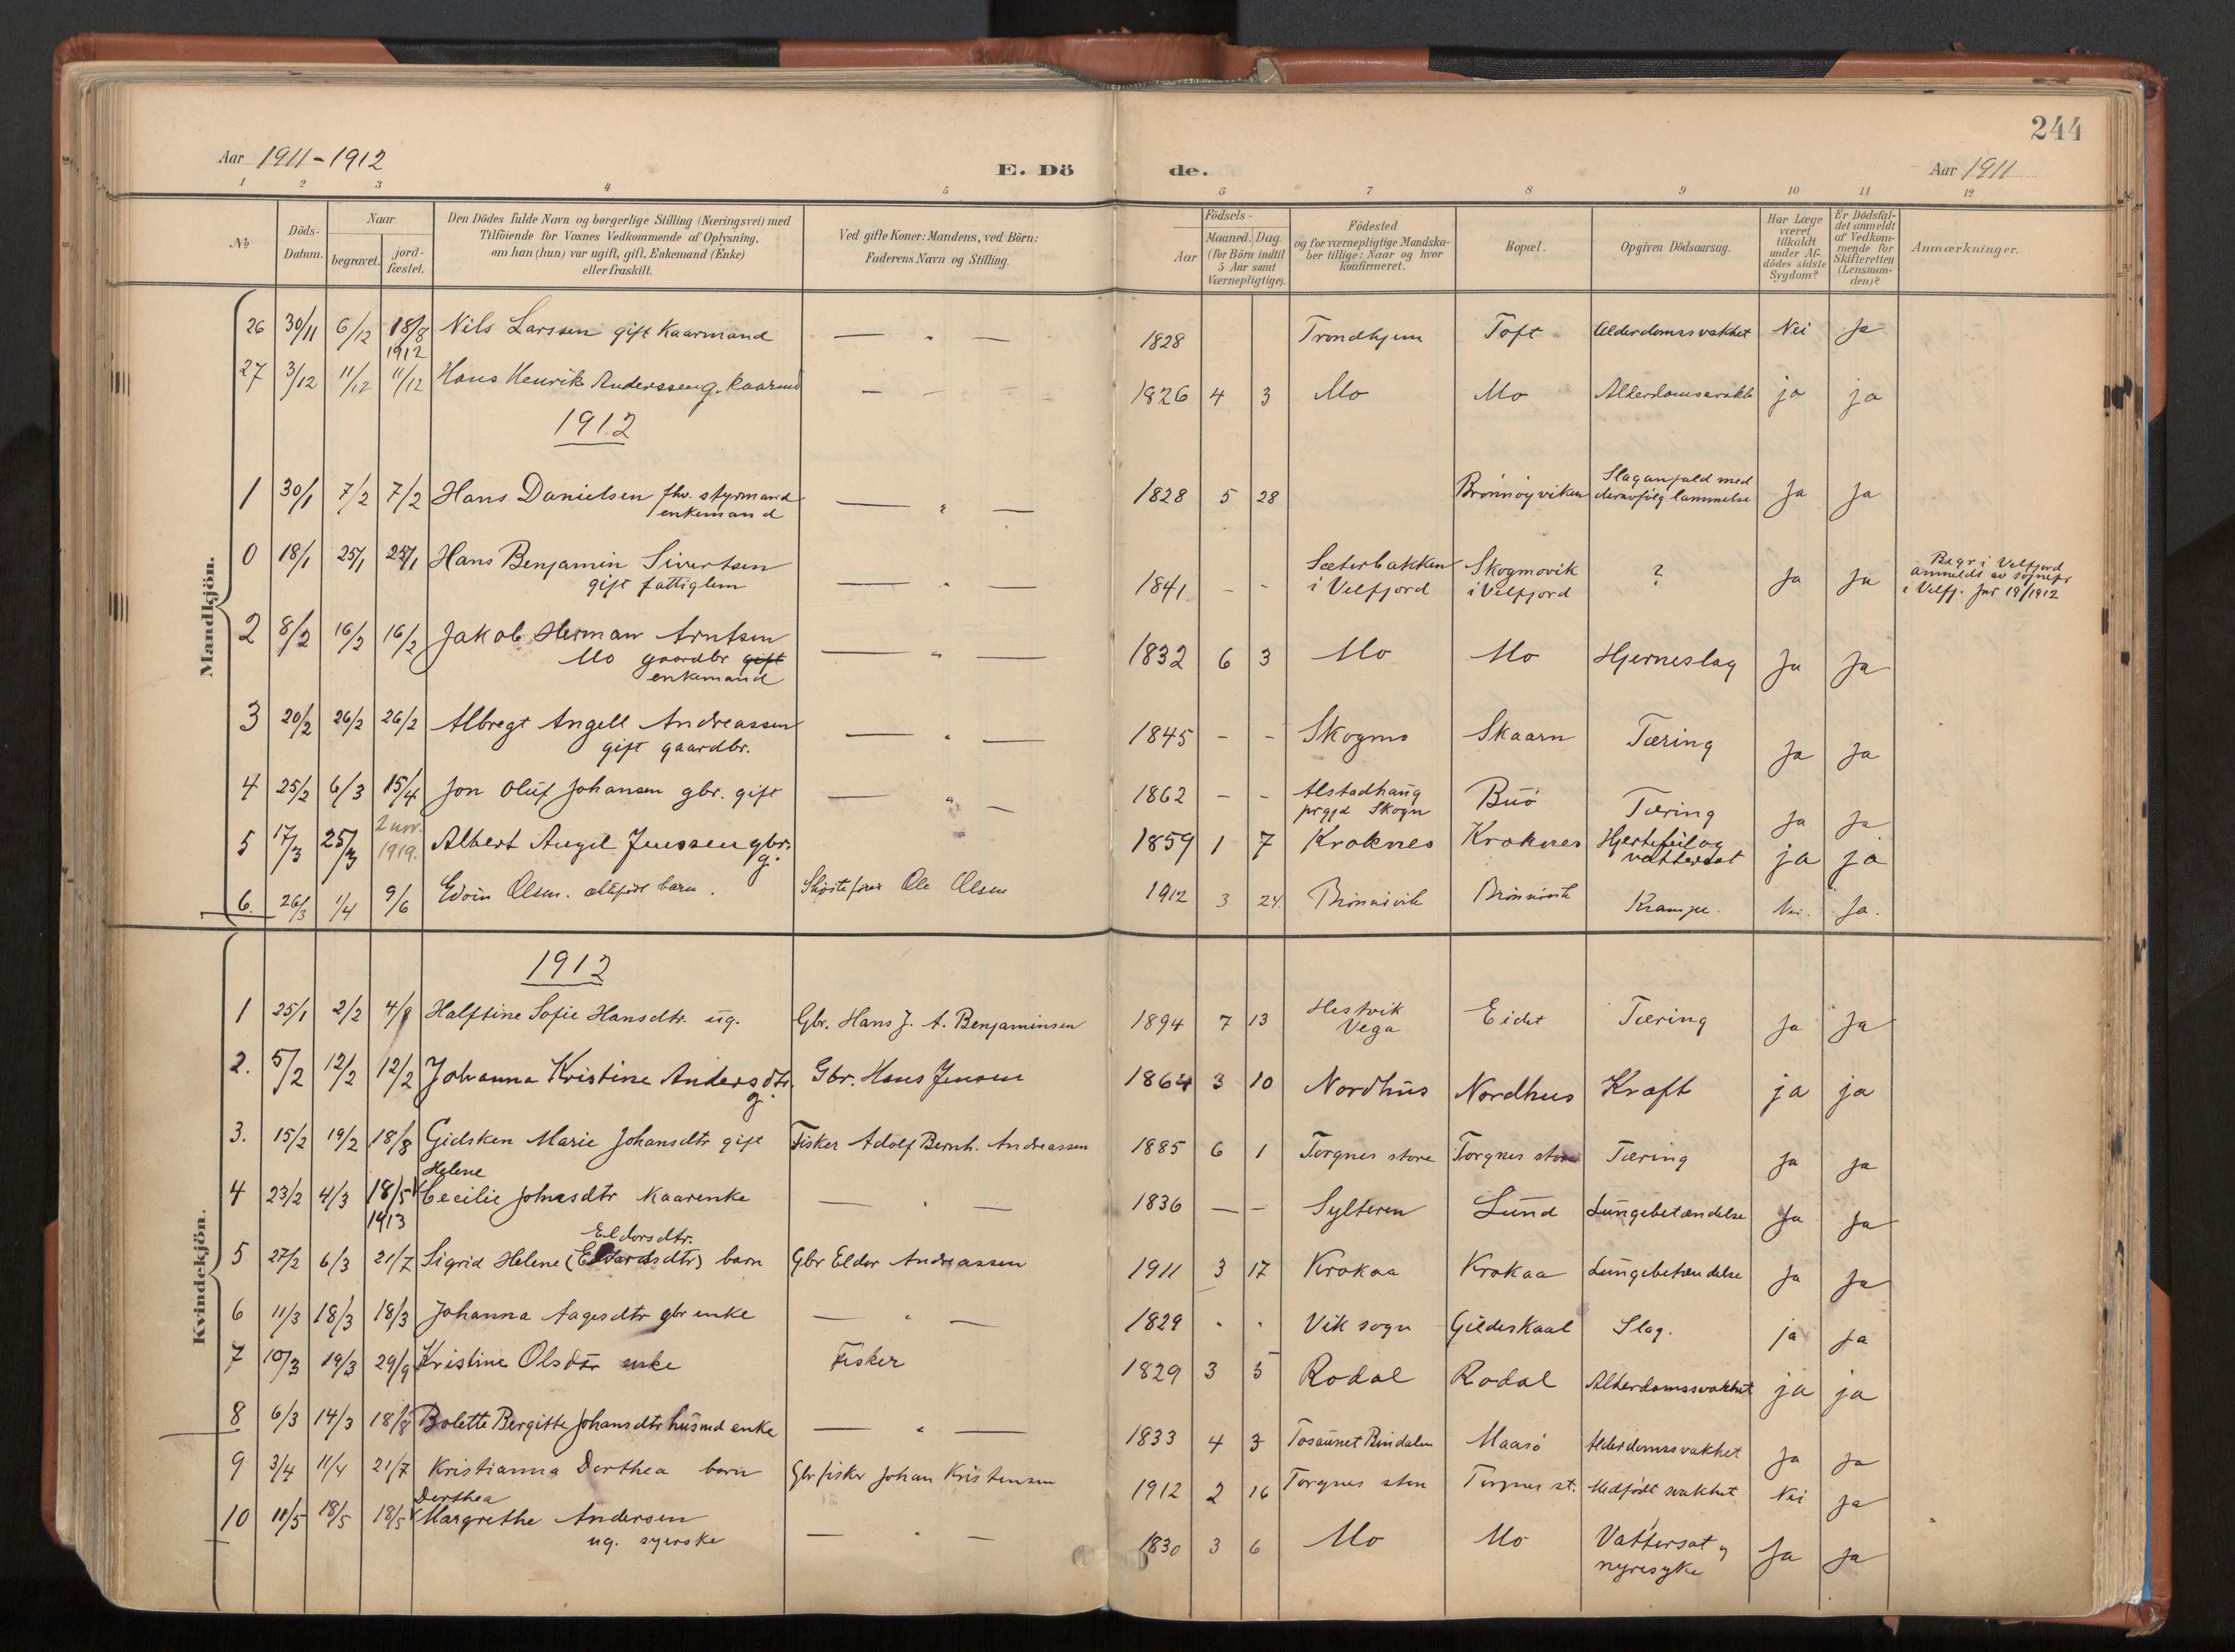 244
Aar 1911-1912
E. Dö de.
Aar 1911
1 2 3 4 5 6 7 8 9 10 11 12
No
Döds-
Datum.
Naar
begravet.
jord-
fæstet.
Den Dödes fulde Navn og borgerlige Stilling (Næringsvei) med
Tilföiende for Voxnes Vedkommende af Oplysning,
om han (hun) var ugift, gift, Enkemand (Enke)
eller fraskilt.
Ved gifte Koner: Mandens, ved Börn:
Faderens Navn og Stilling.
Födsels-
Aar
Maaned. Dag.
(for Börn indtil
5 Aar samt
Værnepligtige).
Födested
og for værnepligtige Mandska-
ber tillige: Naar og hvor
konfirmeret.
Bopæl.
Opgiven Dödsaarsag.
Har Læge
været
tilkaldt
under Af-
dödes sidste
Sygdom?
Er Dödsfal-
det anmeldt
af Vedkom-
mende for
Skifteretten
(Lensman-
den)?
Anmærkninger.
Mandkjön.
26 30/11 6/12 18/8 Nils Larssen gift Kaarmand — " — 1828 Trondhjem Toft Alderdomssvakhet Nei Ja
1912
27 3/12 11/12 11/12 Hans Henrik Anderssen g. kaarmd — — 1826 4 3 Mo Mo Alderdomssvakh ja ja
1912
1 30/1 7/2 7/2 Hans Danielsen fhv. styrmand — " — 1828 5 28 Brönnöyviken Slaganfald med Ja Ja
enkemand deravfölg lammelse
0 18/1 25/1 25/1 Hans Benjamin Sivertsen — " — 1841 - - Sæterbakken Skogmovik ? Ja Ja Begr i Velfjord
gift fattiglem i Velfjord i Velfjord anmeldt av sognepr
i Velfj. Jnr 19/1912
2 8/2 16/2 16/2 Jakob Herman Arntsen — " — 1832 6 3 Mo Mo Hjerneslag Ja Ja
Mo gaardbr gift
enkemand
3 20/2 26/2 26/2 Albregt Angell Andreassen — " — 1845 - - Skogmo Skaarn Tæring Ja Ja
gift gaardbr.
4 25/2 6/3 15/4 Jon Oluf Johansen gbr. gift — " — 1862 - - Alstadhaug Buö Tæring Ja Ja
prgjd Skogn
2 nov.
5 17/3 25/3 1919. Albert Angel Jenssen gbr. 1859 1 7 Kroknes Kroknes Hjertefeil og ja ja
g. vattersot
6. 26/3 1/4 9/6 Edvin Olsen. barn. Ole Olsen 1912 3 24. Brönnövik Brönnövik Krampe. Nei. Ja.
Kvindekjön.
1912
1 25/1 2/2 4/8 Halftine Sofie Hansdtr. ug. Gbr. Hans J. A. Benjaminsen 1894 7 13 Hestvik Eidet Tæring Ja Ja
Vega
2. 5/2 12/2 12/2 Johanna Kristine Andersdtr. Gbr. Hans Jensen 1864 3 10 Nordhus Nordhus Kræft ja ja
g.
3. 15/2 19/2 18/8 Gidsken Marie Johansdtr gift Fisker Adolf Bernh. Andreassen 1885 6 1 Torgnes store Torgnes store Tæring Ja Ja
Helene
4 23/2 4/3 18/5 Cecilie Johnsdtr Kaarenke — " — 1836 — — Sylteren Lund Lungebetændelse Ja Ja
1913
Eldorsdtr.
5 27/2 6/3 21/7 Sigrid Helene (Edvardsdtr) barn Gbr Eldor Andreassen 1911 3 17 Krokaa Krokaa Lungebetændelse Ja Ja
6 11/3 18/3 18/3 Johanna Aagesdtr gbr enke — " — 1829 " " Vik sogn Gildeskaal Slag. ja Ja
7 10/3 19/3 29/9 Kristine Olsdtr enke Fisker 1829 3 5 Rodal Rodal Alderdomssvakhet ja ja
8 6/3 14/3 18/8 Bolette Bergitte Johansdtr husmd enke — " — 1833 4 3 Tosaunet Bindalen Maasö Alderdomssvakhet Ja Ja
9 3/4 11/4 21/7 Kristianna Dorthea barn Gbr fisker Johan Kristensen 1912 2 16 Torgnes store Torgnes st. Medfödt svakhet Nei Ja
Dorthea
10 11/5 18/5 18/5 Margrethe Andersen — " — 1830 3 6 Mo Mo Vattersot og Ja Ja
ug. syerske nyresyke